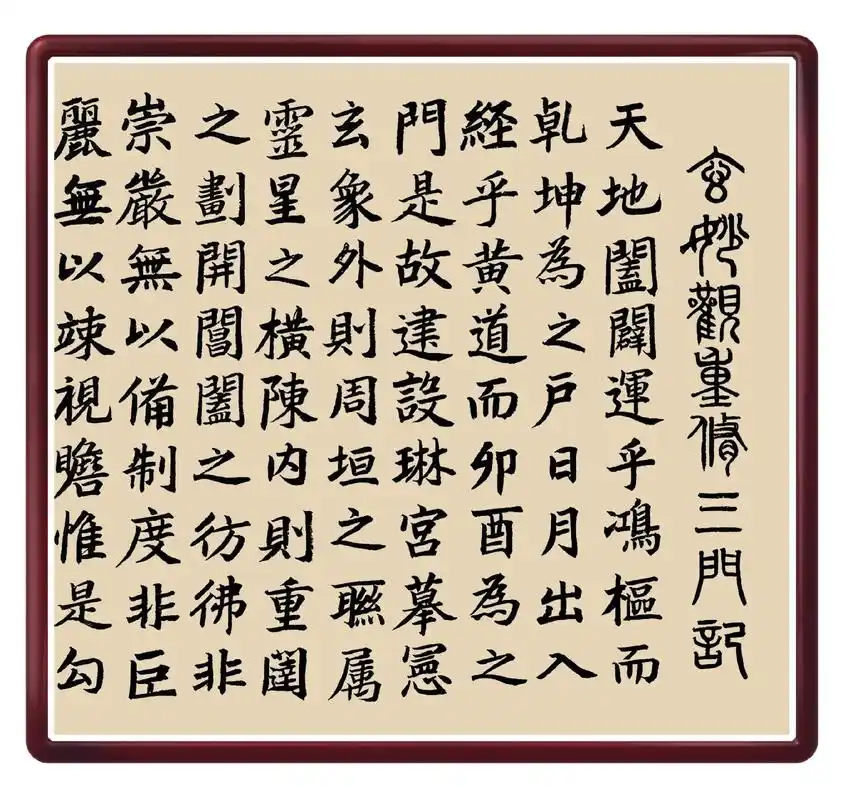 玄妙觀重脩三門記
天地闔闢運乎鴻樞而
乹坤為之戶日月出入
経乎黄道而卯酉為之
門是故建設琳宮摹憲
玄象外則周垣之聮属
靈星之橫陳内則重闈
之劃開閶闔之彷彿非
崇嚴無以備制度非臣
麗無以竦視瞻惟是勾